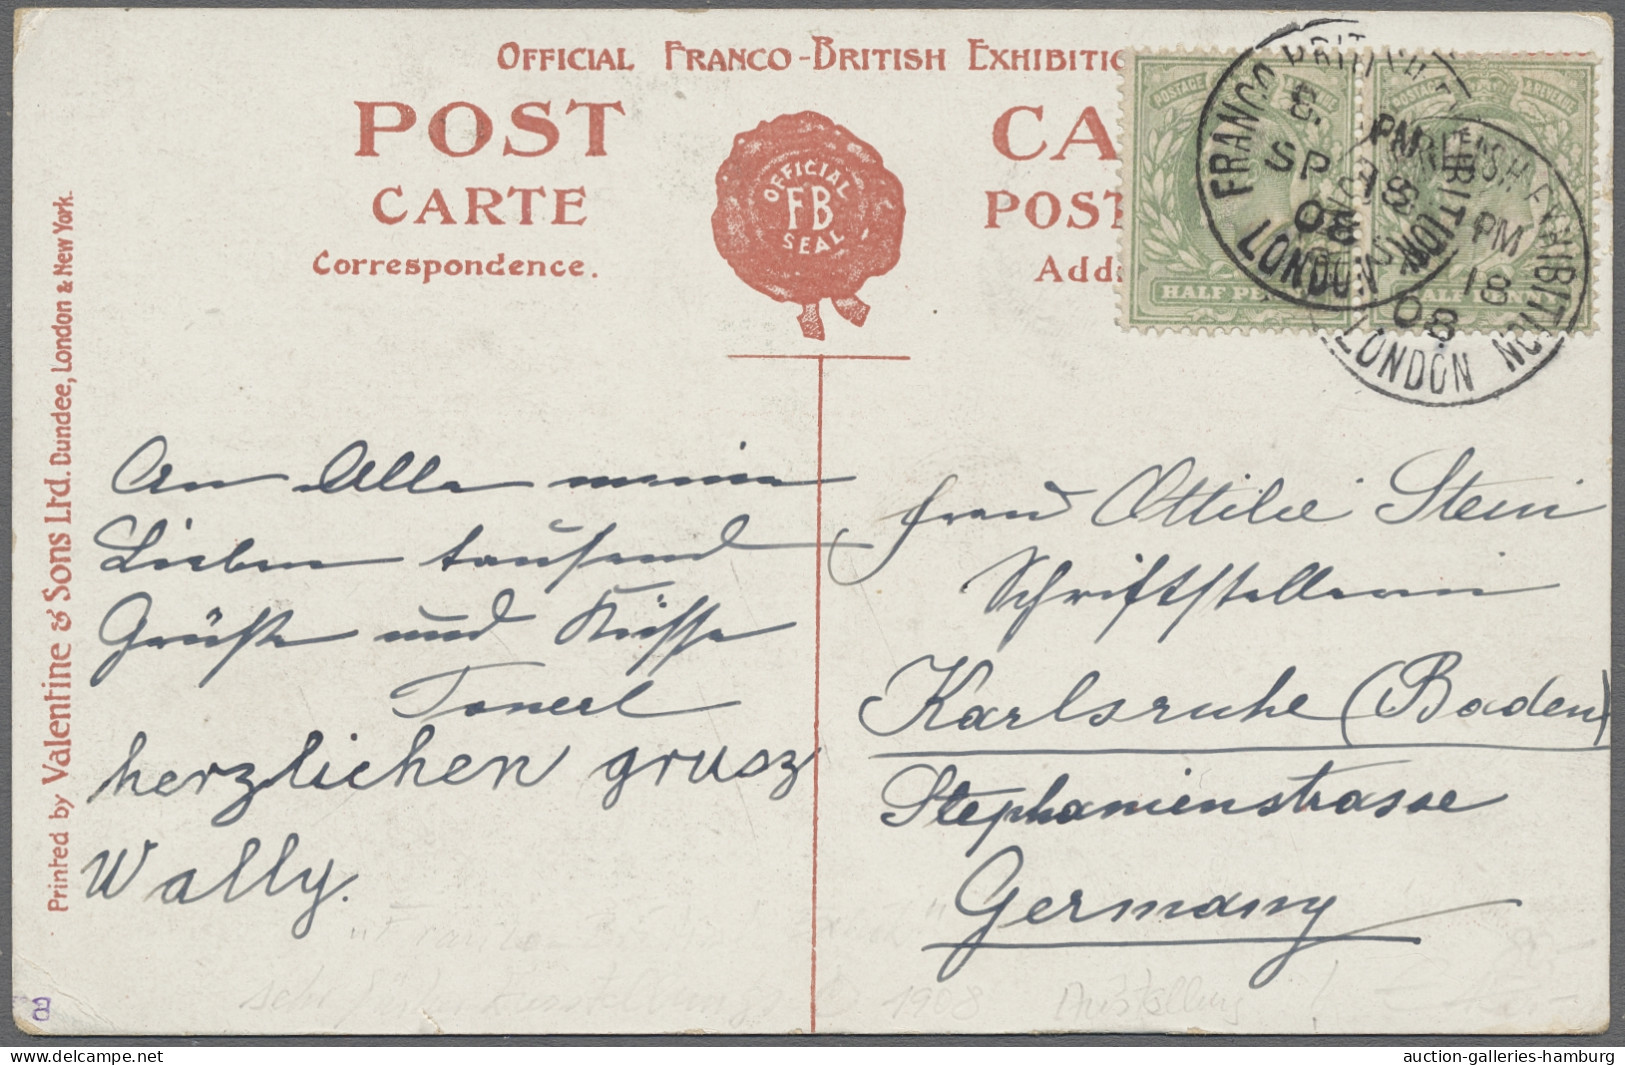 OFFICIAL FRANCO-BRITISH EXHIBITIO
POST CA
CARTE POST
Correspondence. Add
OFFICIAL
FB
SEAL
POSTAGE REVENUE
HALF PE
POSTAGE & REVENUE
HALF PENNY
FRANCO BRIT
8. PM
SP 18
08
LONDON
BRITISH EXHIBITION
PM
18
08
LONDON
Printed by Valentine & Sons Ltd. Dundee, London & New York.
An Alle meine
Lieben tausend
Grüße und Küsse
Tonerl
herzlichen grusz
Wally.
Frau Ottilie Stein
Schriftstellerin
Karlsruhe (Baden)
Stephanienstrasse
Germany
1908 Ausstellung
8
www.delcampe.net
auction-galleries-hamburg